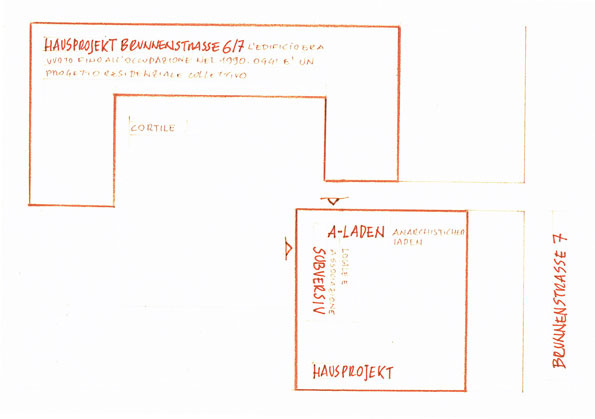 HAUSPROJEKT BRUNNENSTRASSE 6/7 L'EDIFICIO ERA
VUOTO FINO ALL'OCCUPAZIONE NEL 1990. OGGI E' UN
PROGETTO RESIDENZIALE COLLETTIVO
CORTILE
A-LADEN ANARCHISTISCHER
LADEN
LOCALE E
ASSOCIAZIONE
SUBVERSIV
HAUSPROJEKT
BRUNNENSTRASSE 7